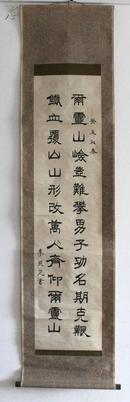 癸
爾靈山嶮豈難攀男子功名期克艱
鐵血覆山山形改萬人齊仰爾靈山
書